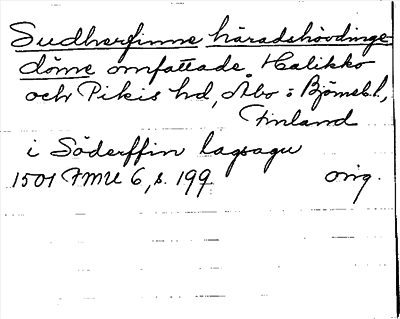 Sudherfinne häradshövdinge-
döme omfattade Halikko
och Pikis hd, Åbo : Björneb. l,
Finland
i Söderffin lagsagu
1501 FMU 6, s. 199 orig.